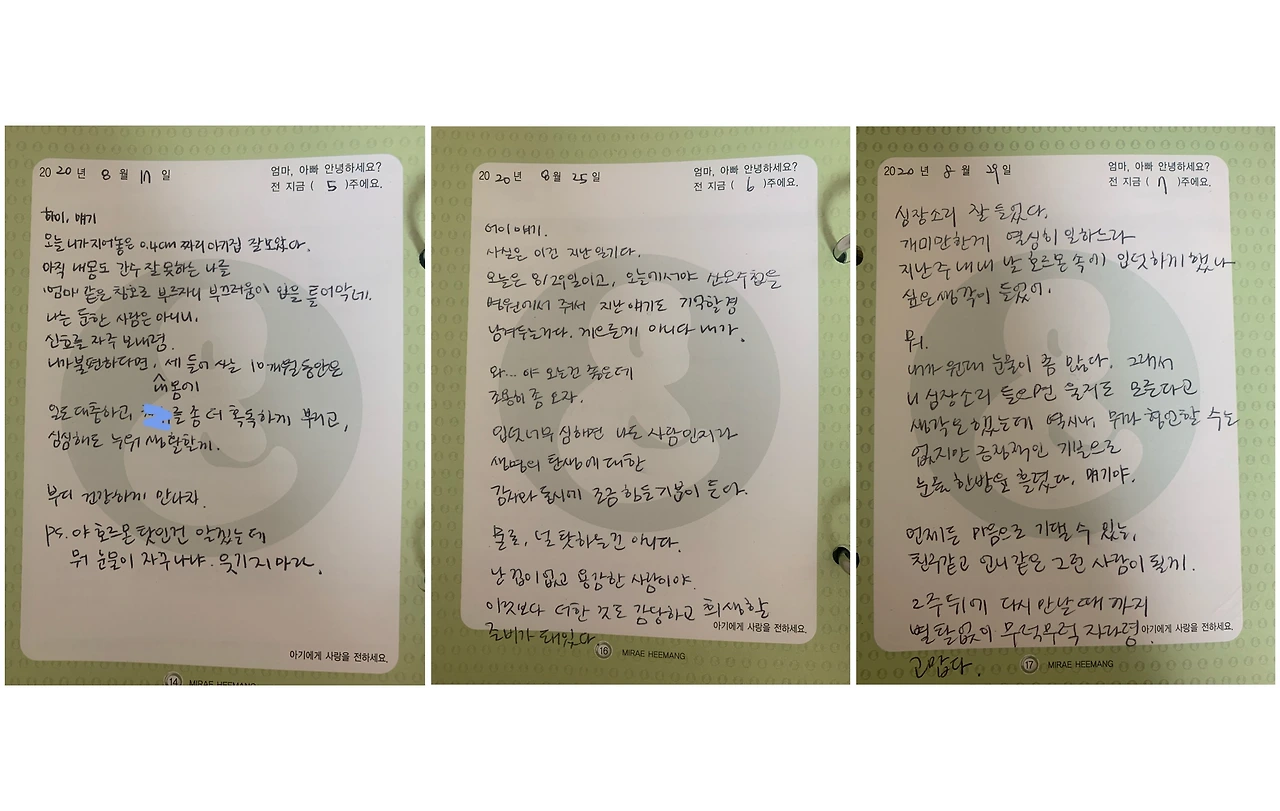 2020 년 8 월 17 일
엄마, 아빠 안녕하세요?
전 지금 ( 5 )주에요.
하이, 얘기
오늘 니가 지어놓은 0.4cm 짜리 아기집 잘 보았다.
아직 내몸도 간수 잘 못하는 나를
'엄마' 같은 칭호로 부르자니 부끄러움이 입을 틀어막네.
나는 둔한 사람은 아니니,
신호를 자주 보내렴.
니가 불편하다면, 세 들어 사는 10개월 동안은
내 몸에
일도 대충하고, 를 좀 더 혹독하게 부리고,
심심해도 누워 생활할게.
부디 건강하게 만나자.
ps. 야 호르몬 탓인건 알겠는데
뭐 눈물이 자꾸 나냐. 웃기지마라.
아기에게 사랑을 전하세요.
14 MIRAE HEEMANG
2020 년 8 월 25 일
엄마, 아빠 안녕하세요?
전 지금 ( 6 )주에요.
어이 얘기.
사실은 이건 지난 일기다.
오늘은 8/28일이고, 오늘에서야 산모수첩을
병원에서 줘서 지난 얘기도 기억할 겸
남겨두는거다. 게으른게 아니다 내가.
와... 야 오는건 좋은데
조용히 좀 오자.
입덧 너무 심해면 나도 사람인지라
생명의 탄생에 대한
감사와 동시에 조금 힘든 기분이 든다.
물론, 널 탓하는건 아니다.
난 겁이 없고 용감한 사람이야.
이것보다 더한 것도 감당하고 희생할
준비가 돼있다.
아기에게 사랑을 전하세요.
16 MIRAE HEEMANG
2020 년 8 월 29 일
엄마, 아빠 안녕하세요?
전 지금 ( 7 )주에요.
심장소리 잘 들었다.
개미만한게 열심히 일하느라
지난주 내내 날 호르몬 속에 입덧하게 했나
싶은 생각이 들었어.
뭐.
내가 원래 눈물이 좀 많다. 그래서
니 심장소리 들으면 울지도 모른다고
생각은 했는데 역시나, 뭐라 형언할 수는
없지만 긍정적인 기분으로
눈물 한방울 흘렸다. 얘기야.
언제든 마음으로 기댈 수 있는,
친구같고 언니같은 그런 사람이 될게.
2주 뒤에 다시 만날 때 까지
별 탈없이 무럭무럭 자라렴.
아기에게 사랑을 전하세요.
고맙다.
17 MIRAE HEEMANG